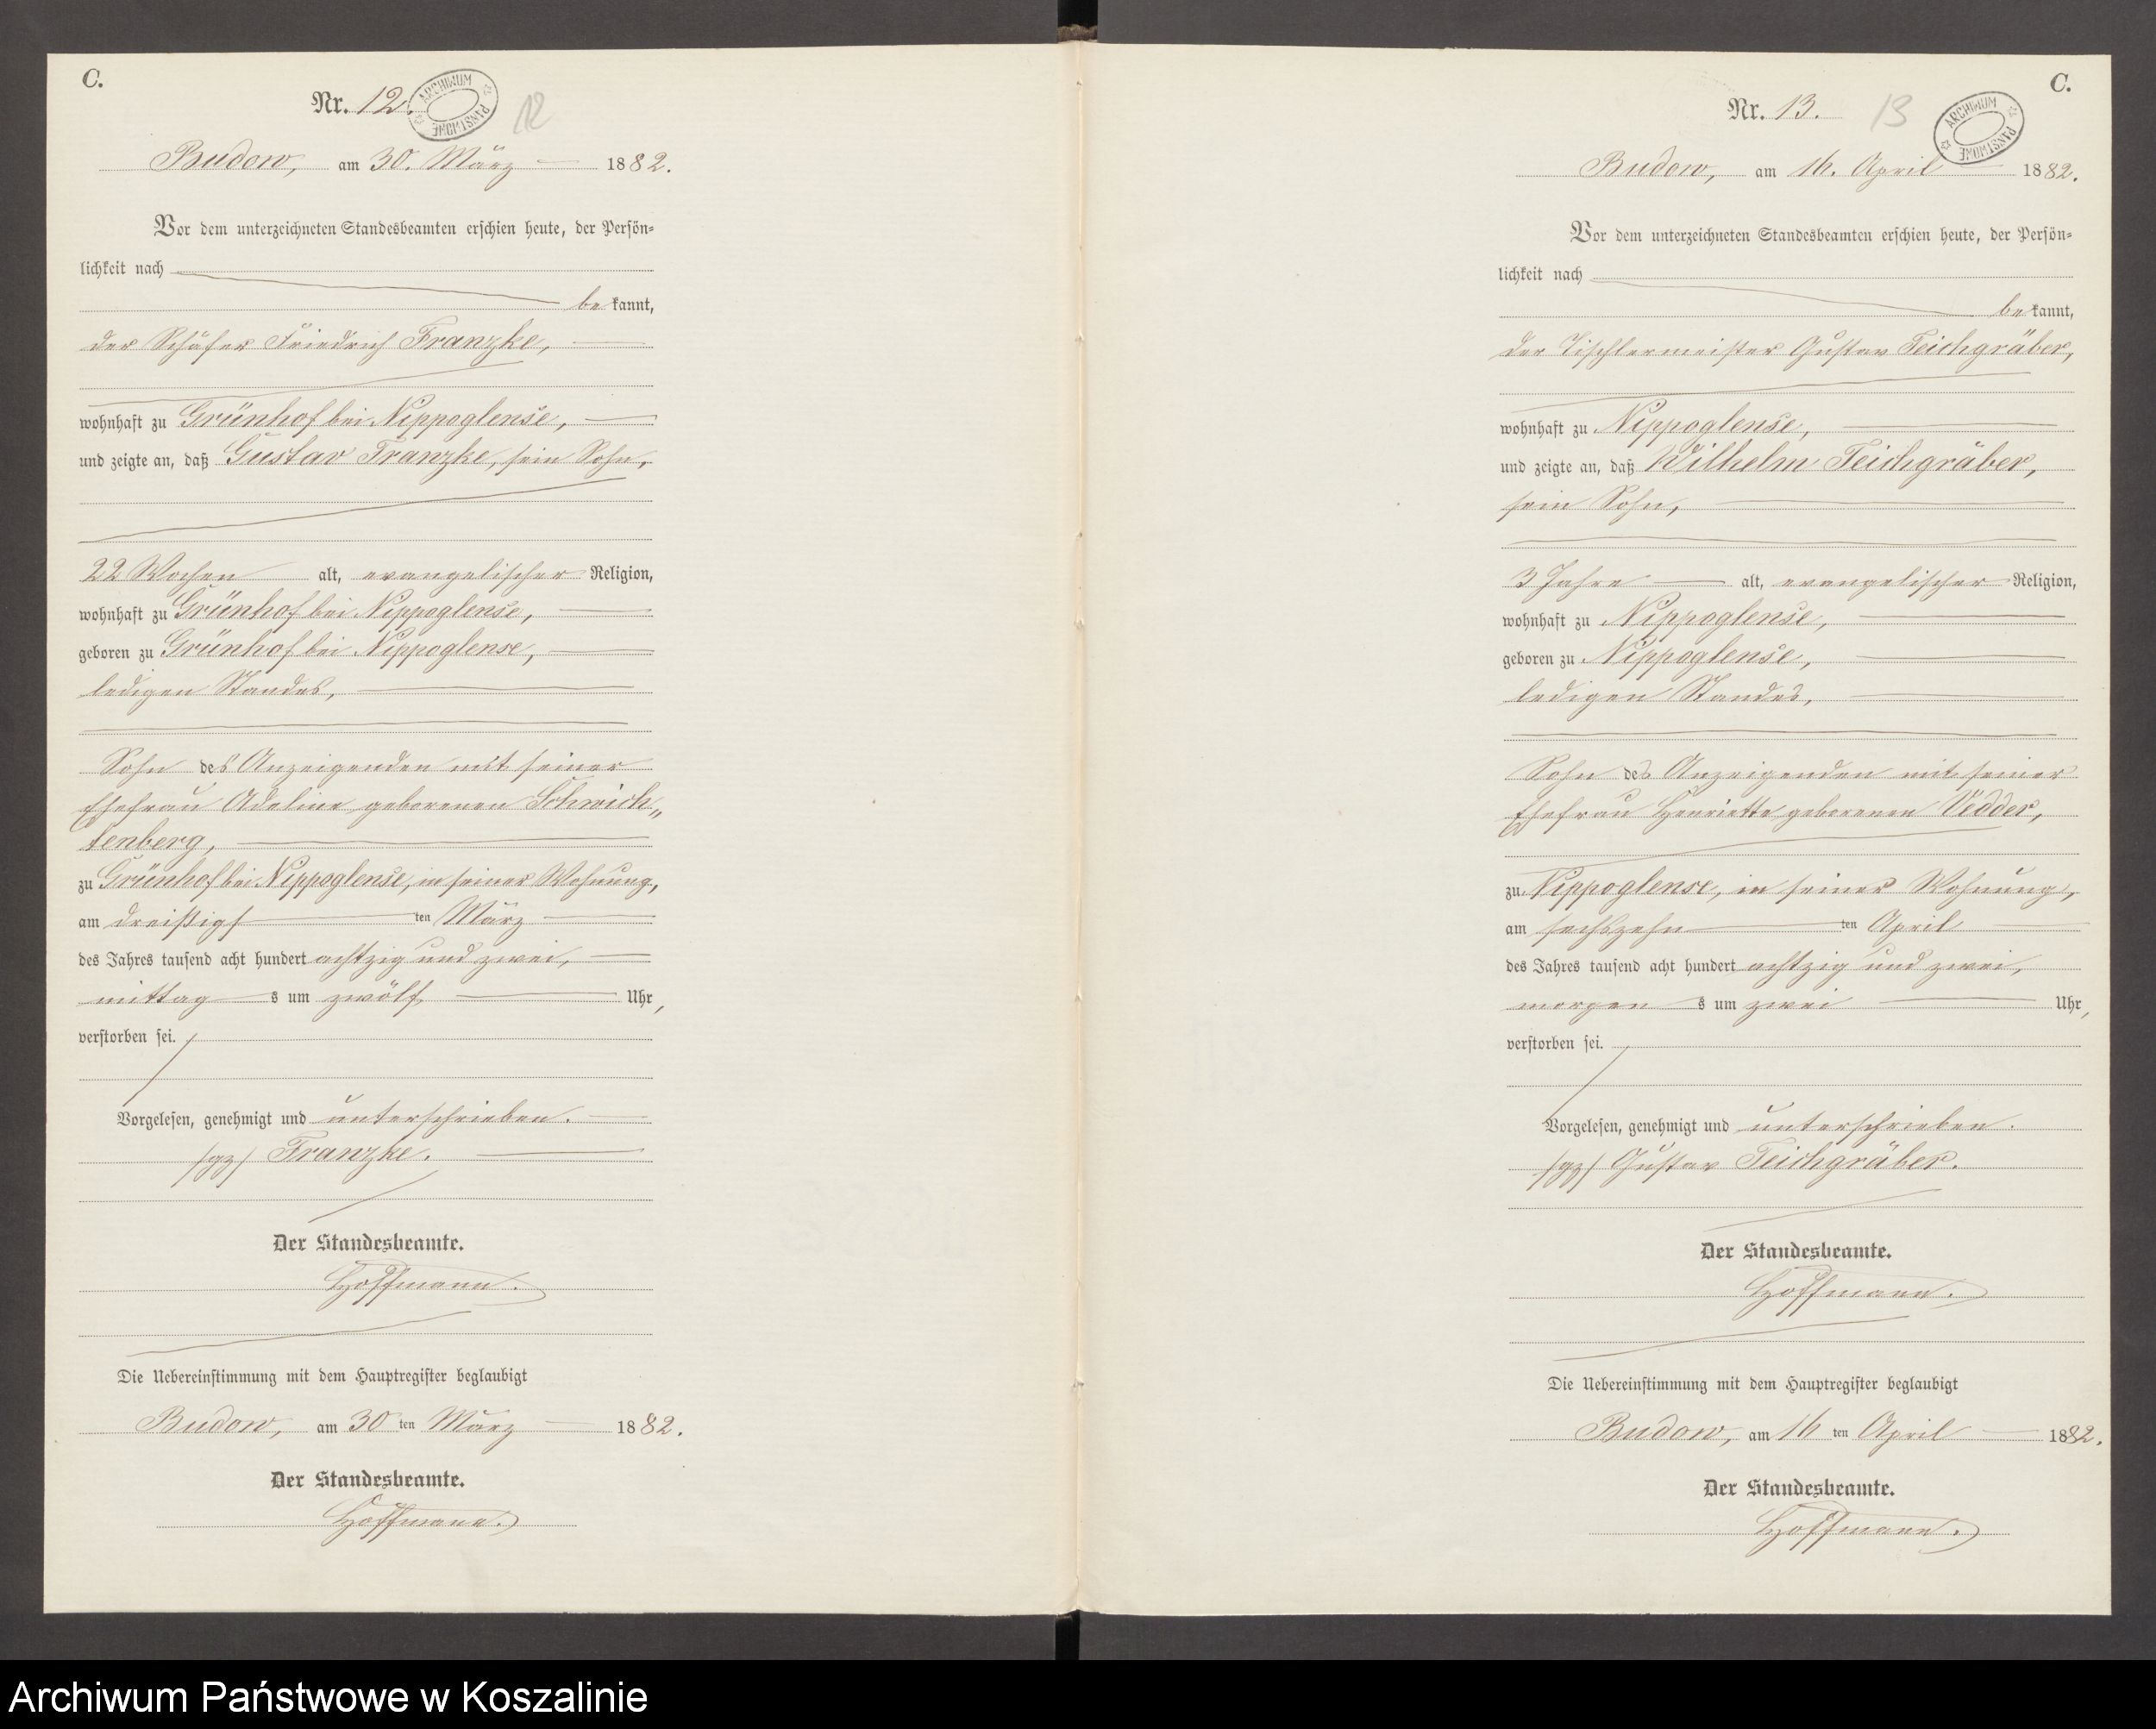 C.
Nr. 12.
ARCHIWUM PAŃSTWOWE
12
Budow, am 30. März 1882.
Vor dem unterzeichneten Standesbeamten erschien heute, der Persön=
lichkeit nach
bekannt,
der Schäfer Friedrich Franzke,
wohnhaft zu Grünhof bei Nippoglense,
und zeigte an, daß Gustav Franzke, sein Sohn,
22 Wochen alt, evangelischer Religion,
wohnhaft zu Grünhof bei Nippoglense,
geboren zu Grünhof bei Nippoglense,
ledigen Standes,
Sohn des Anzeigenden mit seiner
Ehefrau Adeline geborenen Schwich„
tenberg,
zu Grünhof bei Nippoglense, in seiner Wohnung,
am dreißigsten März
des Jahres tausend acht hundert achtzig und zwei,
mittags um zwölf Uhr,
verstorben sei.
Vorgelesen, genehmigt und unterschrieben.
/gz/ Franzke.
Der Standesbeamte.
Hoffmann.
Die Uebereinstimmung mit dem Hauptregister beglaubigt
Budow, am 30ten März 1882.
Der Standesbeamte.
Hoffmann.
C.
Nr. 13.
13
ARCHIWUM PAŃSTWOWE
Budow, am 16. April 1882.
Vor dem unterzeichneten Standesbeamten erschien heute, der Persön=
lichkeit nach
bekannt,
der Tischlermeister Gustav Teichgräber,
wohnhaft zu Nippoglense,
und zeigte an, daß Wilhelm Teichgräber,
sein Sohn,
3 Jahre alt, evangelischer Religion,
wohnhaft zu Nippoglense,
geboren zu Nippoglense,
ledigen Standes,
Sohn des Anzeigenden mit seiner
Ehefrau Henriette geborenen Vedder,
zu Nippoglense, in seiner Wohnung,
am sechszehnten April
des Jahres tausend acht hundert achtzig und zwei,
morgens um zwei Uhr,
verstorben sei.
Vorgelesen, genehmigt und unterschrieben.
/gz/ Gustav Teichgräber.
Der Standesbeamte.
Hoffmann.
Die Uebereinstimmung mit dem Hauptregister beglaubigt
Budow, am 16ten April 1882.
Der Standesbeamte.
Hoffmann.
Archiwum Państwowe w Koszalinie